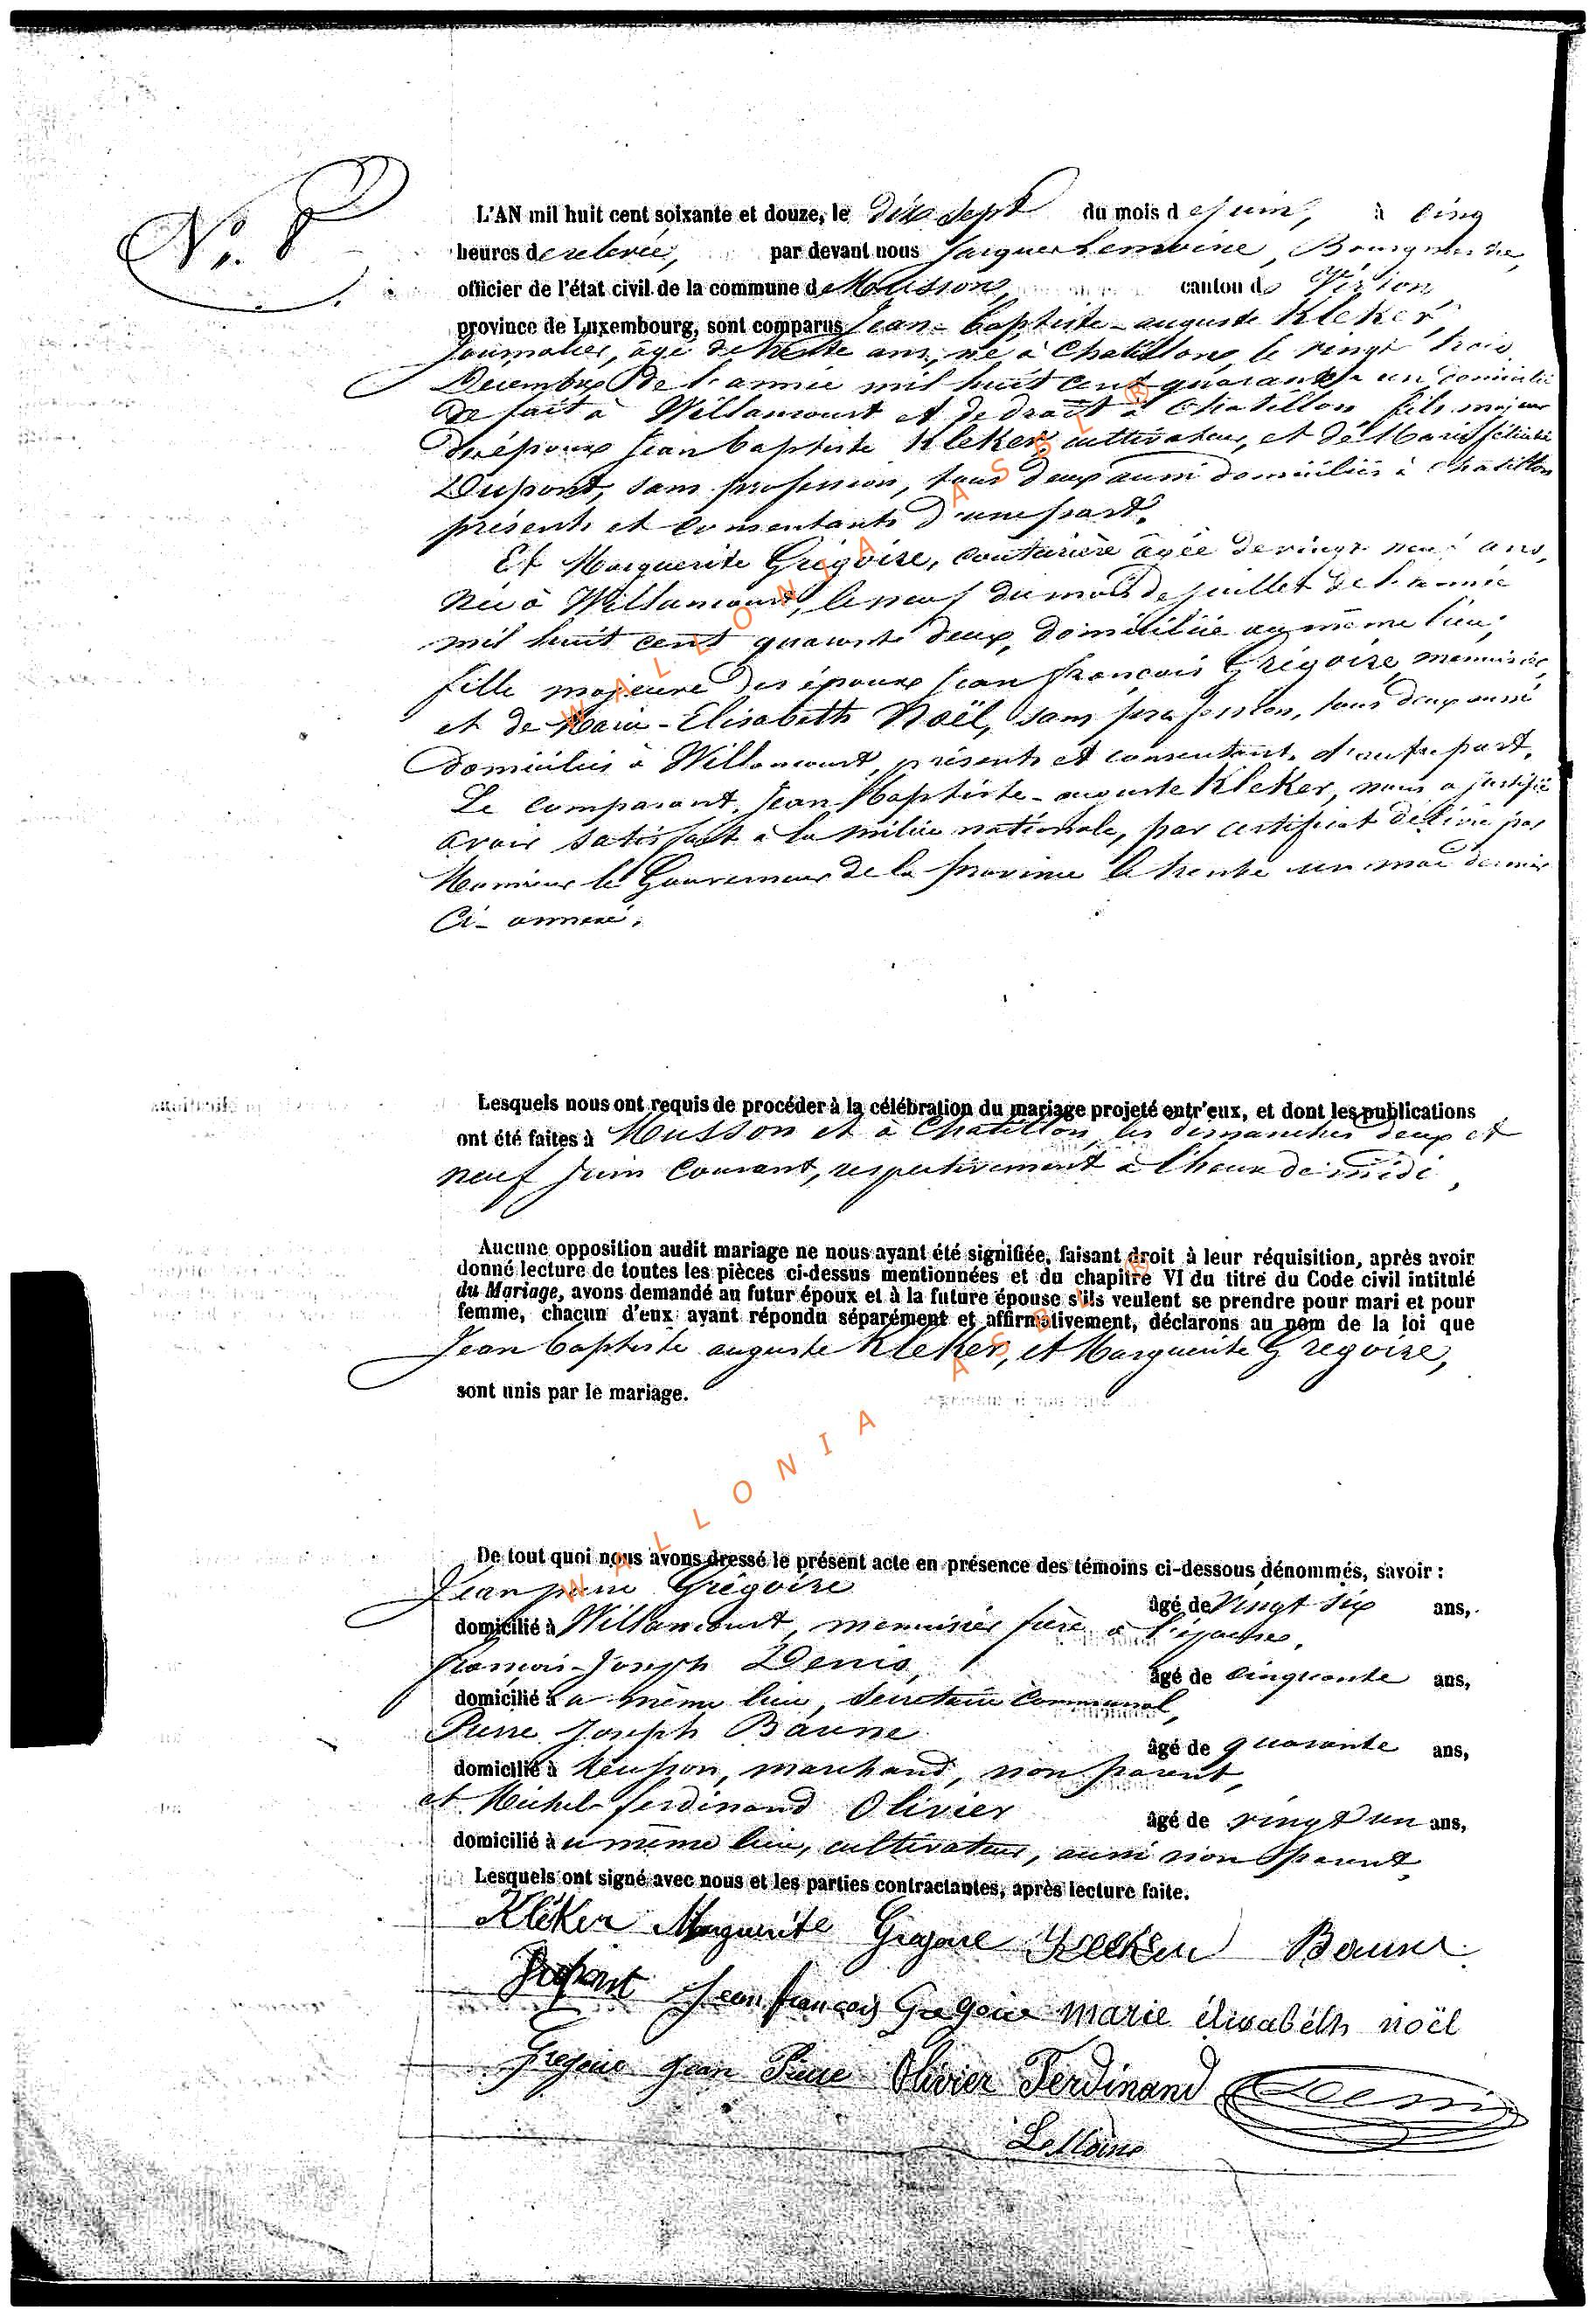 N°. 8
L'AN mil huit cent soixante et douze, le dix sept du mois de juin, à cinq
heures de relevée, par devant nous Jacques Lemoine, Bourgmestre,
officier de l'état civil de la commune de Musson, canton de Virton,
province de Luxembourg, sont comparus Jean-Baptiste-auguste Kleker,
Journalier, âgé de trente ans, né à Chatillon, le vingt trois
Décembre de l'année mil huit cent quarante un domicilié
de fait à Willancourt et de droit à Chatillon fils majeur
des époux Jean baptiste Kleker cultivateur, et de Marie félicité
Dupont, sans profession, tous deux aussi domiciliés à Chatillon
présents et consentants d'une part.
Et Marguerite Grégoire, couturière âgée de vingt neuf ans,
née à Willancourt, le neuf du mois de juillet de l'année
mil huit cent quarante deux, domiciliée au même lieu,
fille majeure des époux Jean françois Grégoire, menuisier,
et de Marie-Elisabeth Noël, sans profession, tous deux aussi
domiciliés à Willancourt, présents et consentant. d'autre part.
Le comparant, Jean-Baptiste-auguste Kleker, nous a justifié
avoir satisfait à la milice nationale, par certificat délivré par
Monsieur le Gouverneur de la province le trente un mai dernier
Ci-annexé.
Lesquels nous ont requis de procéder à la célébration du mariage projeté entr'eux, et dont les publications
ont été faites à Musson et à Chatillon, les dimanches deux et
neuf Juin courant, respectivement à l'heure de midi,
Aucune opposition audit mariage ne nous ayant été signifiée, faisant droit à leur réquisition, après avoir
donné lecture de toutes les pièces ci-dessus mentionnées et du chapitre VI du titre du Code civil intitulé
du Mariage, avons demandé au futur époux et à la future épouse s'ils veulent se prendre pour mari et pour
femme, chacun d'eux ayant répondu séparément et affirmativement, déclarons au nom de la loi que
Jean baptiste auguste Kleker, et Marguerite Grégoire,
sont unis par le mariage.
De tout quoi nous avons dressé le présent acte en présence des témoins ci-dessous dénommés, savoir :
Jean pierre Grégoire âgé de vingt six ans,
domicilié à Willancourt, menuisier frère à l'épouse,
François-Joseph Denis, âgé de cinquante ans,
domicilié à u même lieu, secrétaire communal,
Pierre Joseph Baune âgé de quarante ans,
domicilié à Musson, marchand, non parent,
et Michel ferdinand Olivier âgé de vingt un ans,
domicilié à u même lieu, cultivateur, aussi non parent,
Lesquels ont signé avec nous et les parties contractantes, après lecture faite.
Kléker Marguerite Gregoire Kleker Baune
Dupont Jean françois Gregoire marie élisabéth noël
Gregoire Jean Pierre Olivier Ferdinand Denis
LeMoine
WALLONIA ASBL ®
WALLONIA ASBL ®